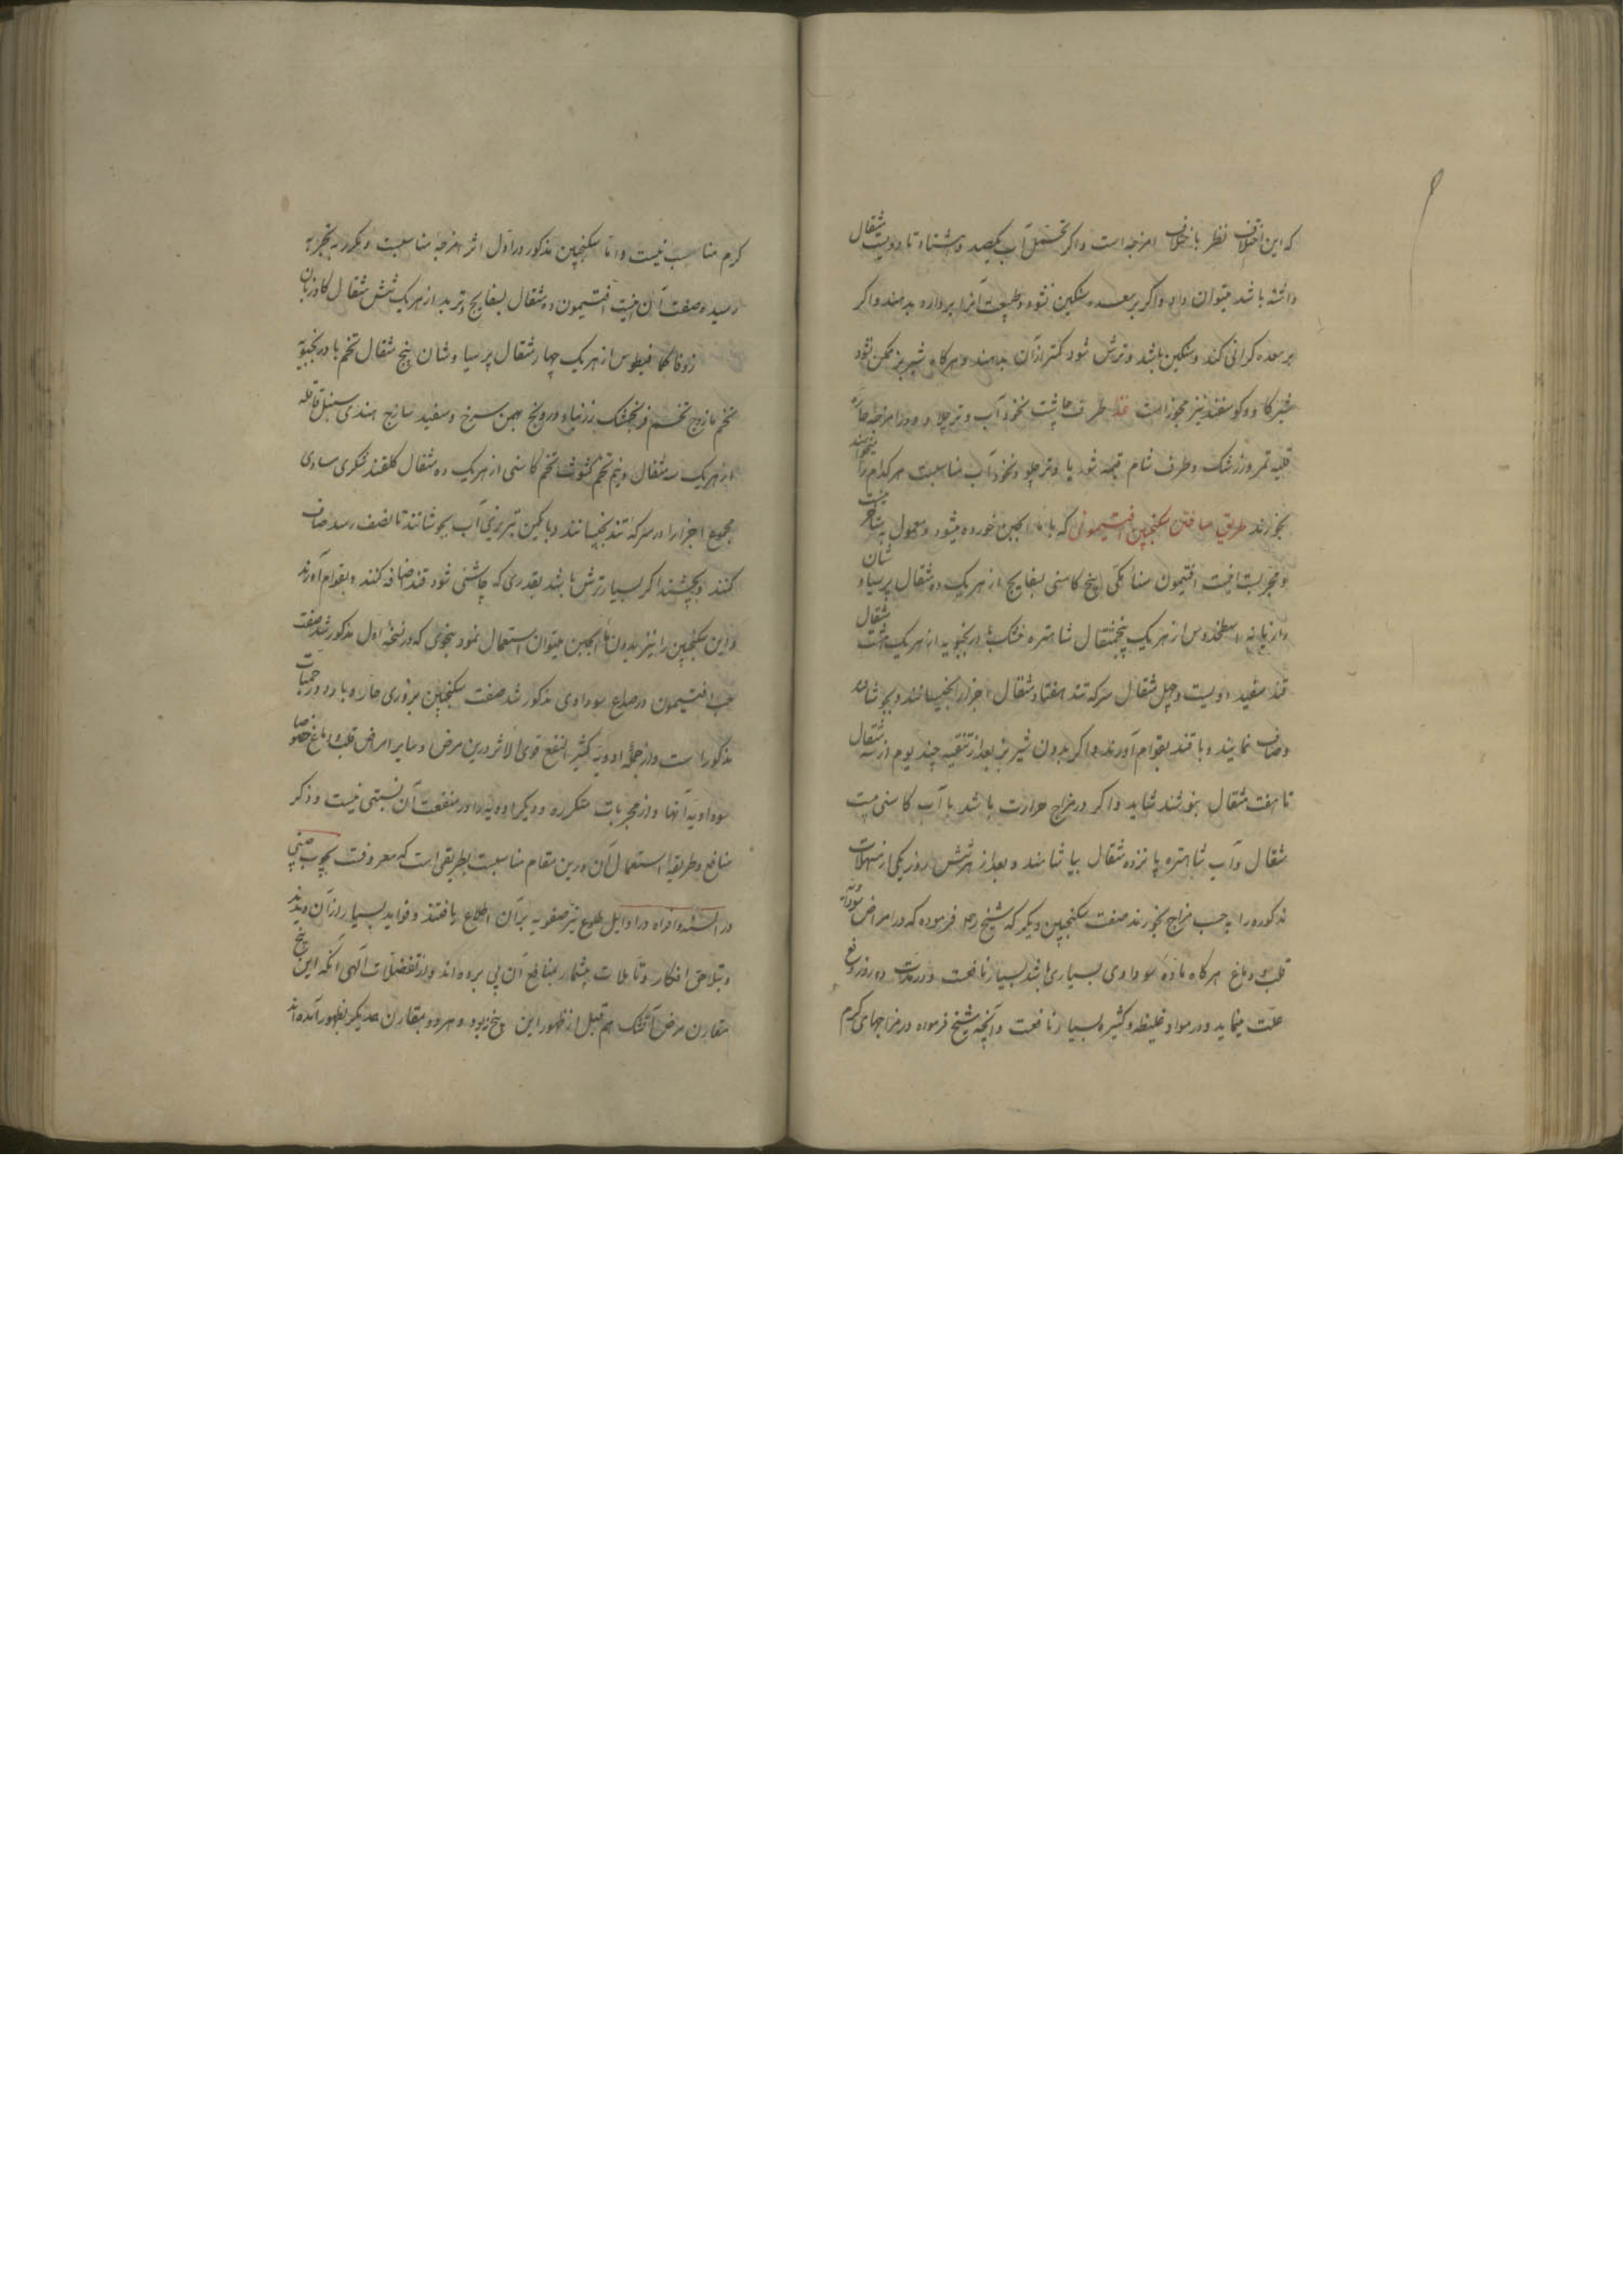 که این اختلاف نظر باختلاف امزجه است و اگر تحمل آب یکصد و هشتاد تا دویست مثقال
داشته باشد میتوان داد و اگر بر معده سنکین نشود و طبیعت آنرا بر دارد بدهند و اگر
بر معده کرانی کند و سنکین باشد و ترش شود کمتر از آن بدهند و هرکاه شیر بز ممکن نشود
شیر کاو و کوسفند نیز مجوز است غذا طرف چاشت نخود آب و تر چلاو و در امزجه حاره
قلیه تمر و زرشک و طرف شام قیمه شور با و تر چلو و نخود آب مناسبست هر کدام را میخواهند
بخورند طریق ساختن سکنجبین افتیمونی که با ماء الجبن خورده میشود و معمول به متأخرینست
و مجربست افتیمون سنا مکی بیخ کاسنی بسفایج از هر یک ده مثقال پرسیاوشان
رازیانه اسطخدوس از هر یک پنجمثقال شاهتره خشک بادرنجبویه از هر یک هشت مثقال
قند سفید دویست و چهل مثقال سرکه تند هفتاد مثقال اجزا را بخیسانند و بجوشانند
و صاف نمایند و با قند بقوام آورند و اگر بدون شیر بز بعد از تنقیه چند یوم از سه مثقال
تا هفت مثقال بنوشند شاید و اگر در مزاج حرارت باشد با آب کاسنی بیست
مثقال و آب شاهتره پانزده مثقال بیاشامند و بعد از هر شش روز یکی از مسهلات
مذکوره را بحسب مزاج بخورند صفت سکنجبین دیگر که شیخ ره فرموده که در امراض سوداویه
قلب و دماغ هرکاه ماده سوداوی بسیاری باشد بسیار نافعست و در مدت ده روز رفع
علت مینماید و در مواد غلیظه و کثیره بسیار نافعست و آنچه شیخ فرموده در مزاجهای کرم
کرم مناسب نیست و اما سکنجبین مذکور در اول اثر امزجه مناسبست و مکرر به تجربه
رسیده صفت آن اینست افتیمون ده مثقال بسفایج و تربد از هر یک شش مثقال کاوزبان
زوفا کمافیطوس از هر یک چهار مثقال پرسیاوشان پنج مثقال تخم بادرنجبویه
تخم بازوج تخم فرنجمشک زرنباد درونج بهمن سرخ و سفید سازج هندی سنبل قاقله
از هر یک سه مثقال و نیم تخم کشوث تخم کاسنی از هر یک ده مثقال کلقند شکری مساوی
مجموع اجزا را در سرکه تند بخیسانند و با یکمن تبریزی آب بجوشانند تا بنصف رسد صاف
کنند و بچشند اکر بسیار ترش باشد بقدری که چاشنی شود قند اضافه کنند و بقوام آورند
و این سکنجبین را نیز بدون ماء الجبن میتوان استعمال نمود بنحوی که در نسخه اول مذکور شد صفت
حب افتیمون در صداع سوداوی مذکور شد صفت سکنجبین بزوری حار و بارد در حمیات
مذکور است و از جمله ادویه کثیر النفع قوی الاثر درین مرض و سایر امراض قلب و دماغ خصوصا
سوداویه آنها و از مجربات متکرره و دیکر ادویه را در منفعت آن نسبتی نیست و ذکر
منافع و طریقه استعمال آن درین مقام مناسبست بطریقی است که معروفست بچوب چینی
در السنه و افواه در اوایل طلوع نیر صفویه بر آن اطلاع یافتند و فواید بسیار از آن دیدند
و بتلاحق افکار و تأملات بیشمار بمنافع آن پی برده اند و از تفضلات الهی آنکه این بیخ
متقارن مرض آتشک هم قبل از ظهور این بیخ نبود و هر دو متقارن همدیکر بظهور آمده اند